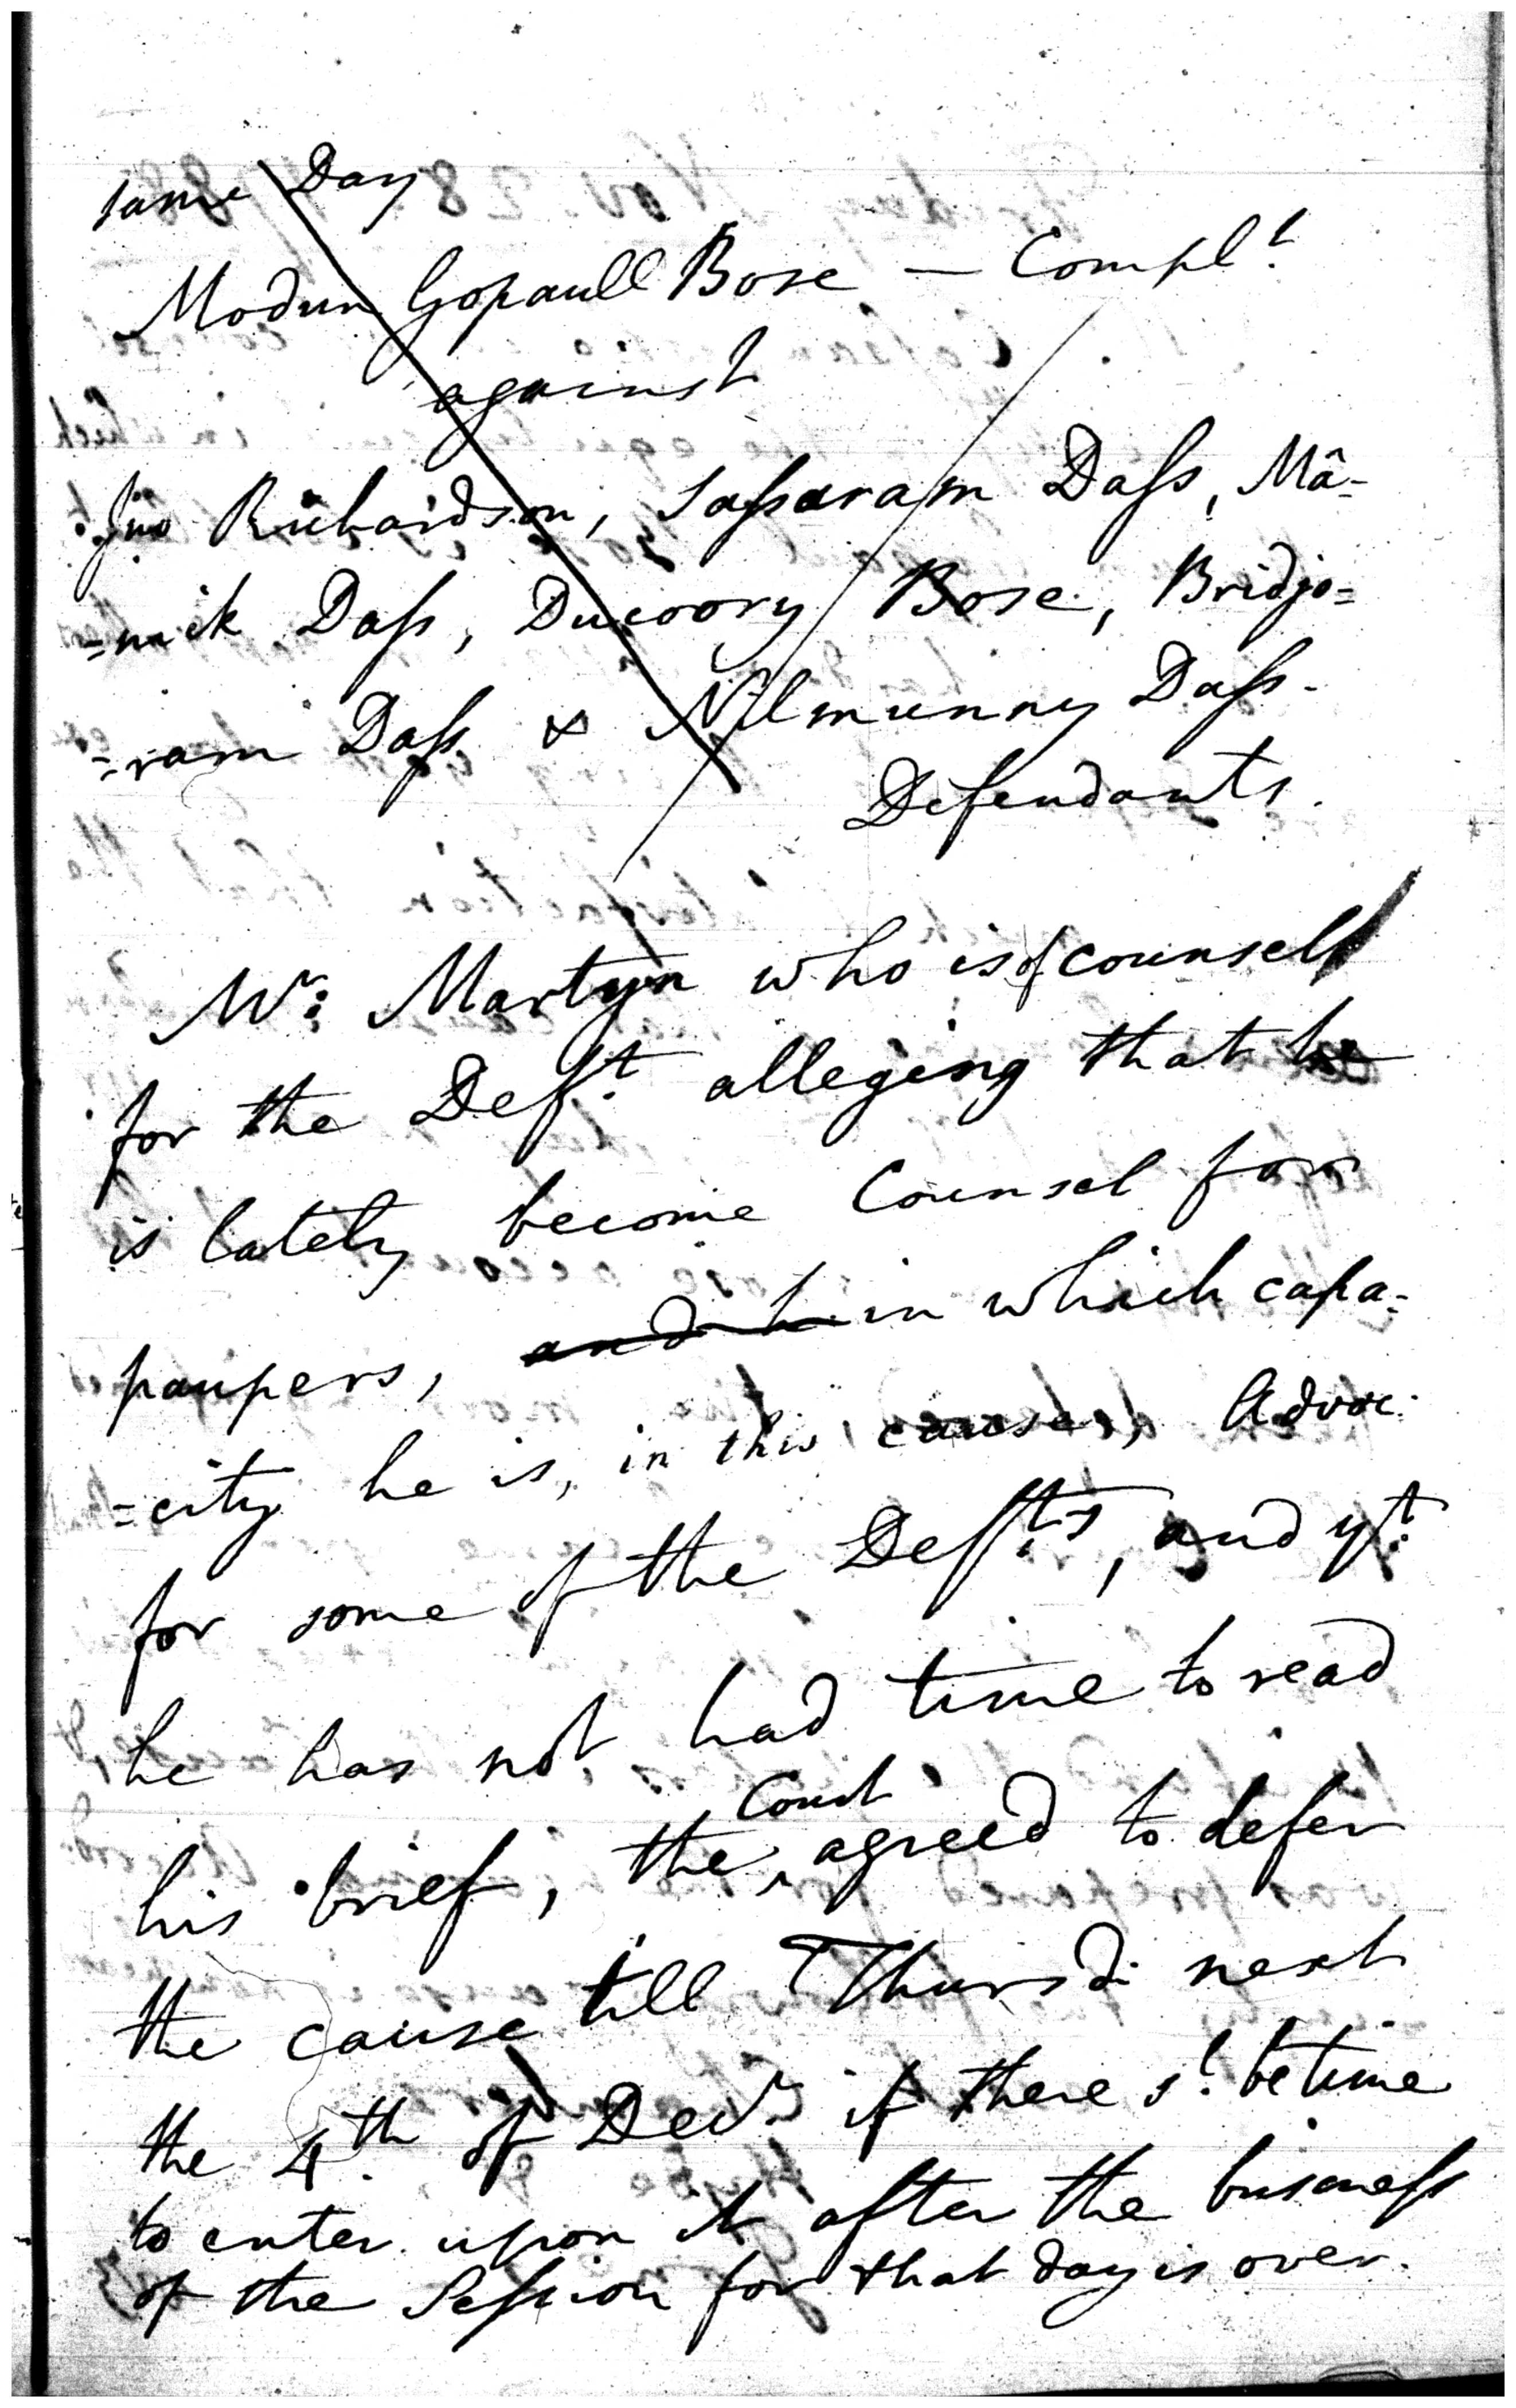 same Day
Modun Gopaull Bose — Compl.t
against
Jno Richardson, Sassaram Dass, Mâ-
-nick Dass, Ducoory Bose, Bridjo=
=ram Dass & Nilmunny Dass.
Defendants.
Mr: Martyn who is of counsel
for the Deft. alleging that he
is lately become Counsel for
paupers, in which capa-
=city he is, in this cause, Advoc.
for some of the Defts., and yt.
he has not had time to read
his brief, the Court agreed to defer
the cause till Thursd. next
the 4th. of Decr. if there sd. be time
to enter upon it after the business
of the Session for that day is over.